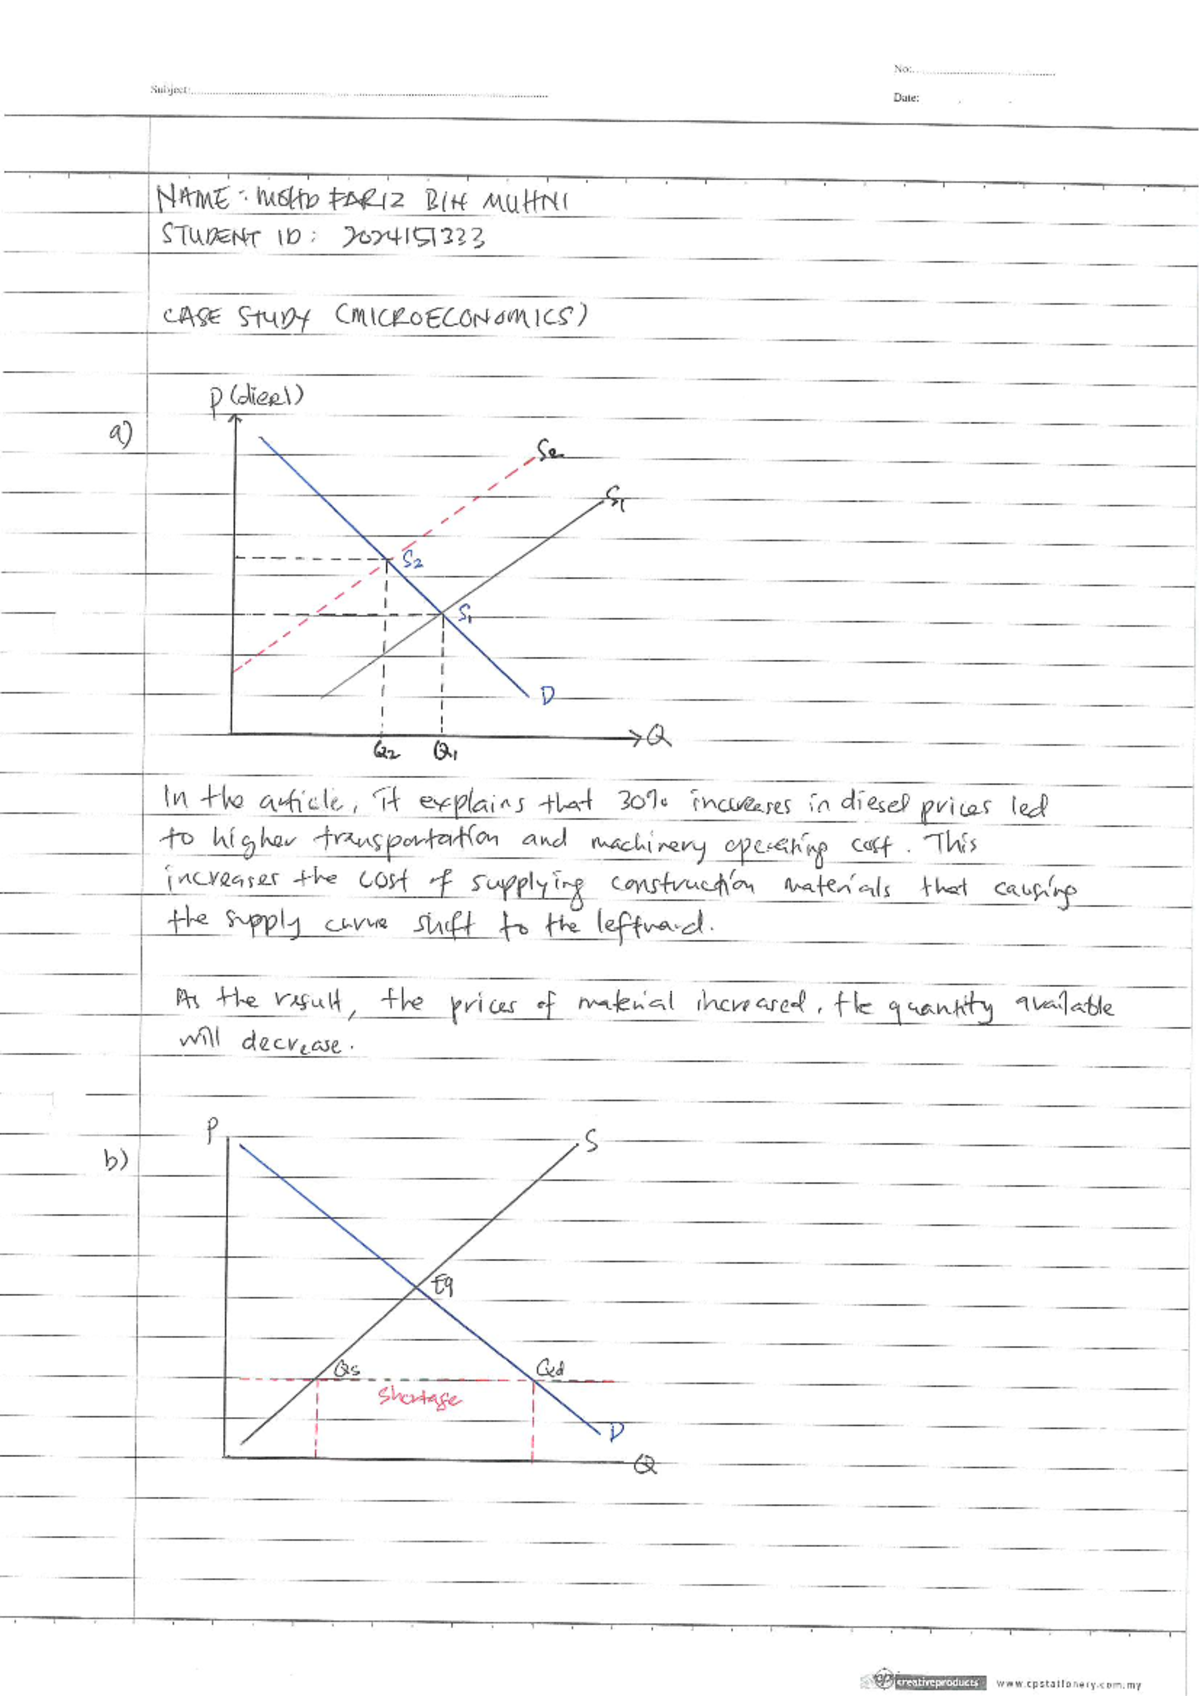 No:
Subject:
Date:
NAME : MOHD FARIZ BIN MUHNI
STUDENT ID : 2024151333
CASE STUDY (MICROECONOMICS)
P (diesel)
a)
S2
S1
S2
S1
D
Q
Q2 Q1
In the article, it explains that 30% increases in diesel prices led
to higher transportation and machinery operating cost. This
increases the cost of supplying construction materials that causing
the supply curve shift to the leftward.
As the result, the prices of material increased, the quantity available
will decrease.
P
S
b)
Eq
Qs Qd
Shortage
D
Q
cp creativeproducts www.cpstationery.com.my